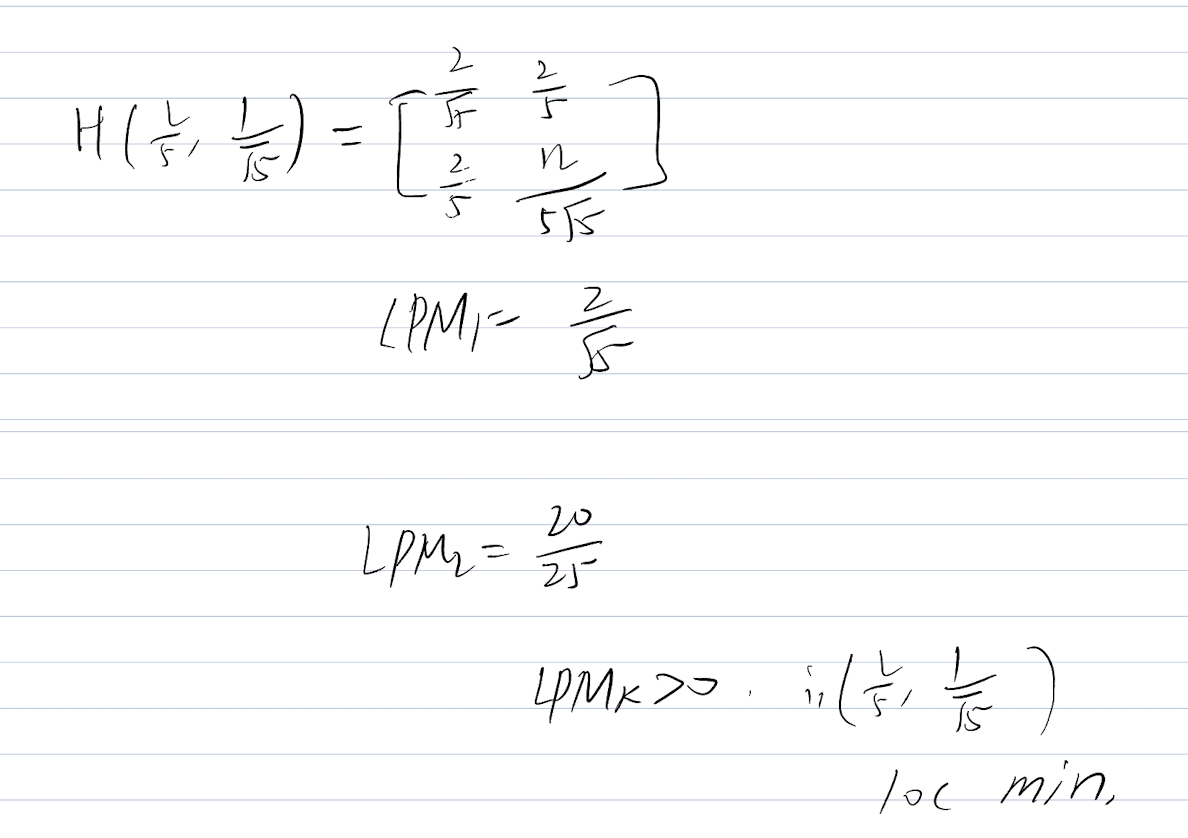 H(1/5, 1/√5) = [2/√5 2/5
2/5 12/5√5]
LPM1 = 2/√5
LPM2 = 20/25
LPMK>0. ii(1/5, 1/√5)
loc min.